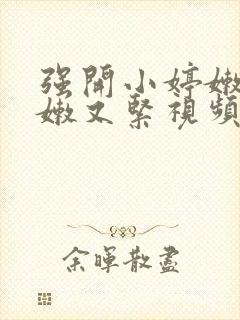 强開小婷嫩
嫩又緊視頻
余暉散盡